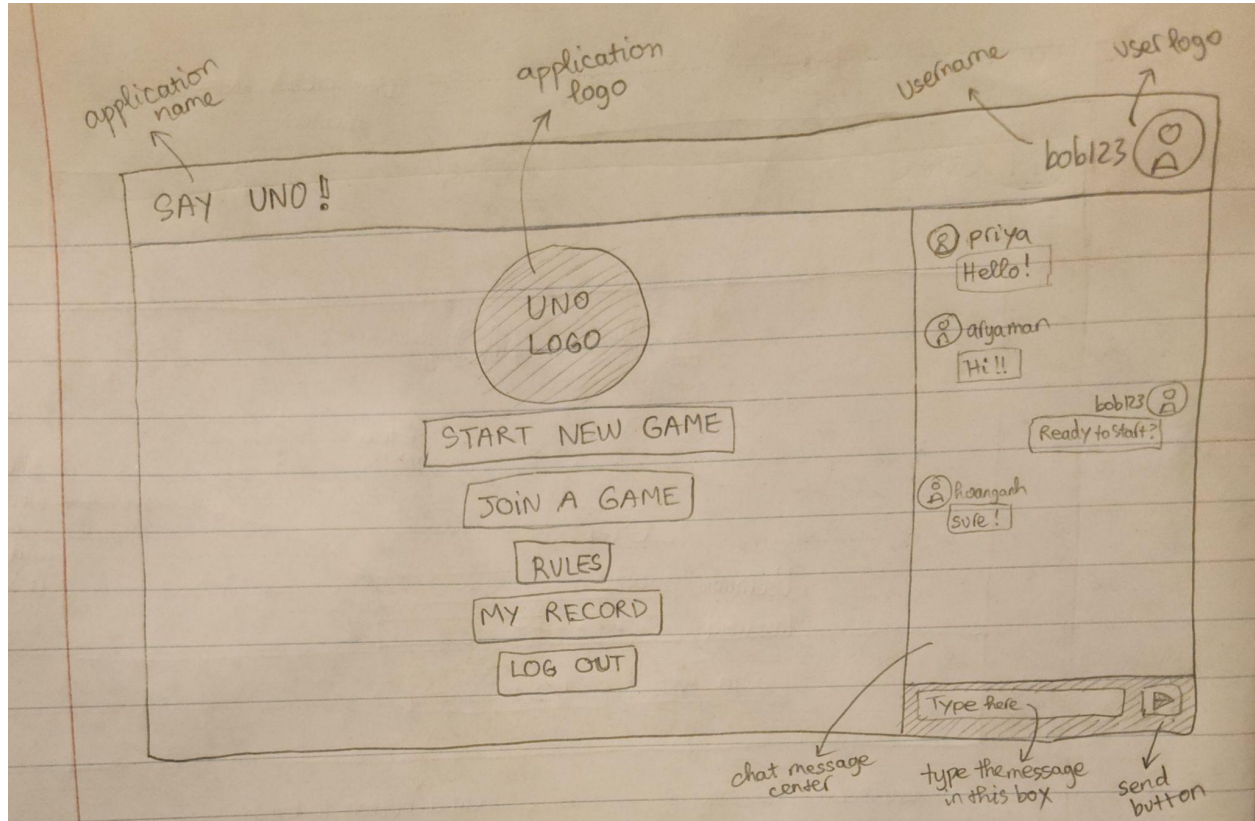 application
name
application
logo
username
user logo
SAY UNO!!
bob123
UNO
LOGO
START NEW GAME
JOIN A GAME
RULES
MY RECORD
LOG OUT
priya
Hello!
aryaman
Hi!!
bob123
Ready to start?
hoanganh
sure!
Type here
chat message
center
type the message
in this box
send
button